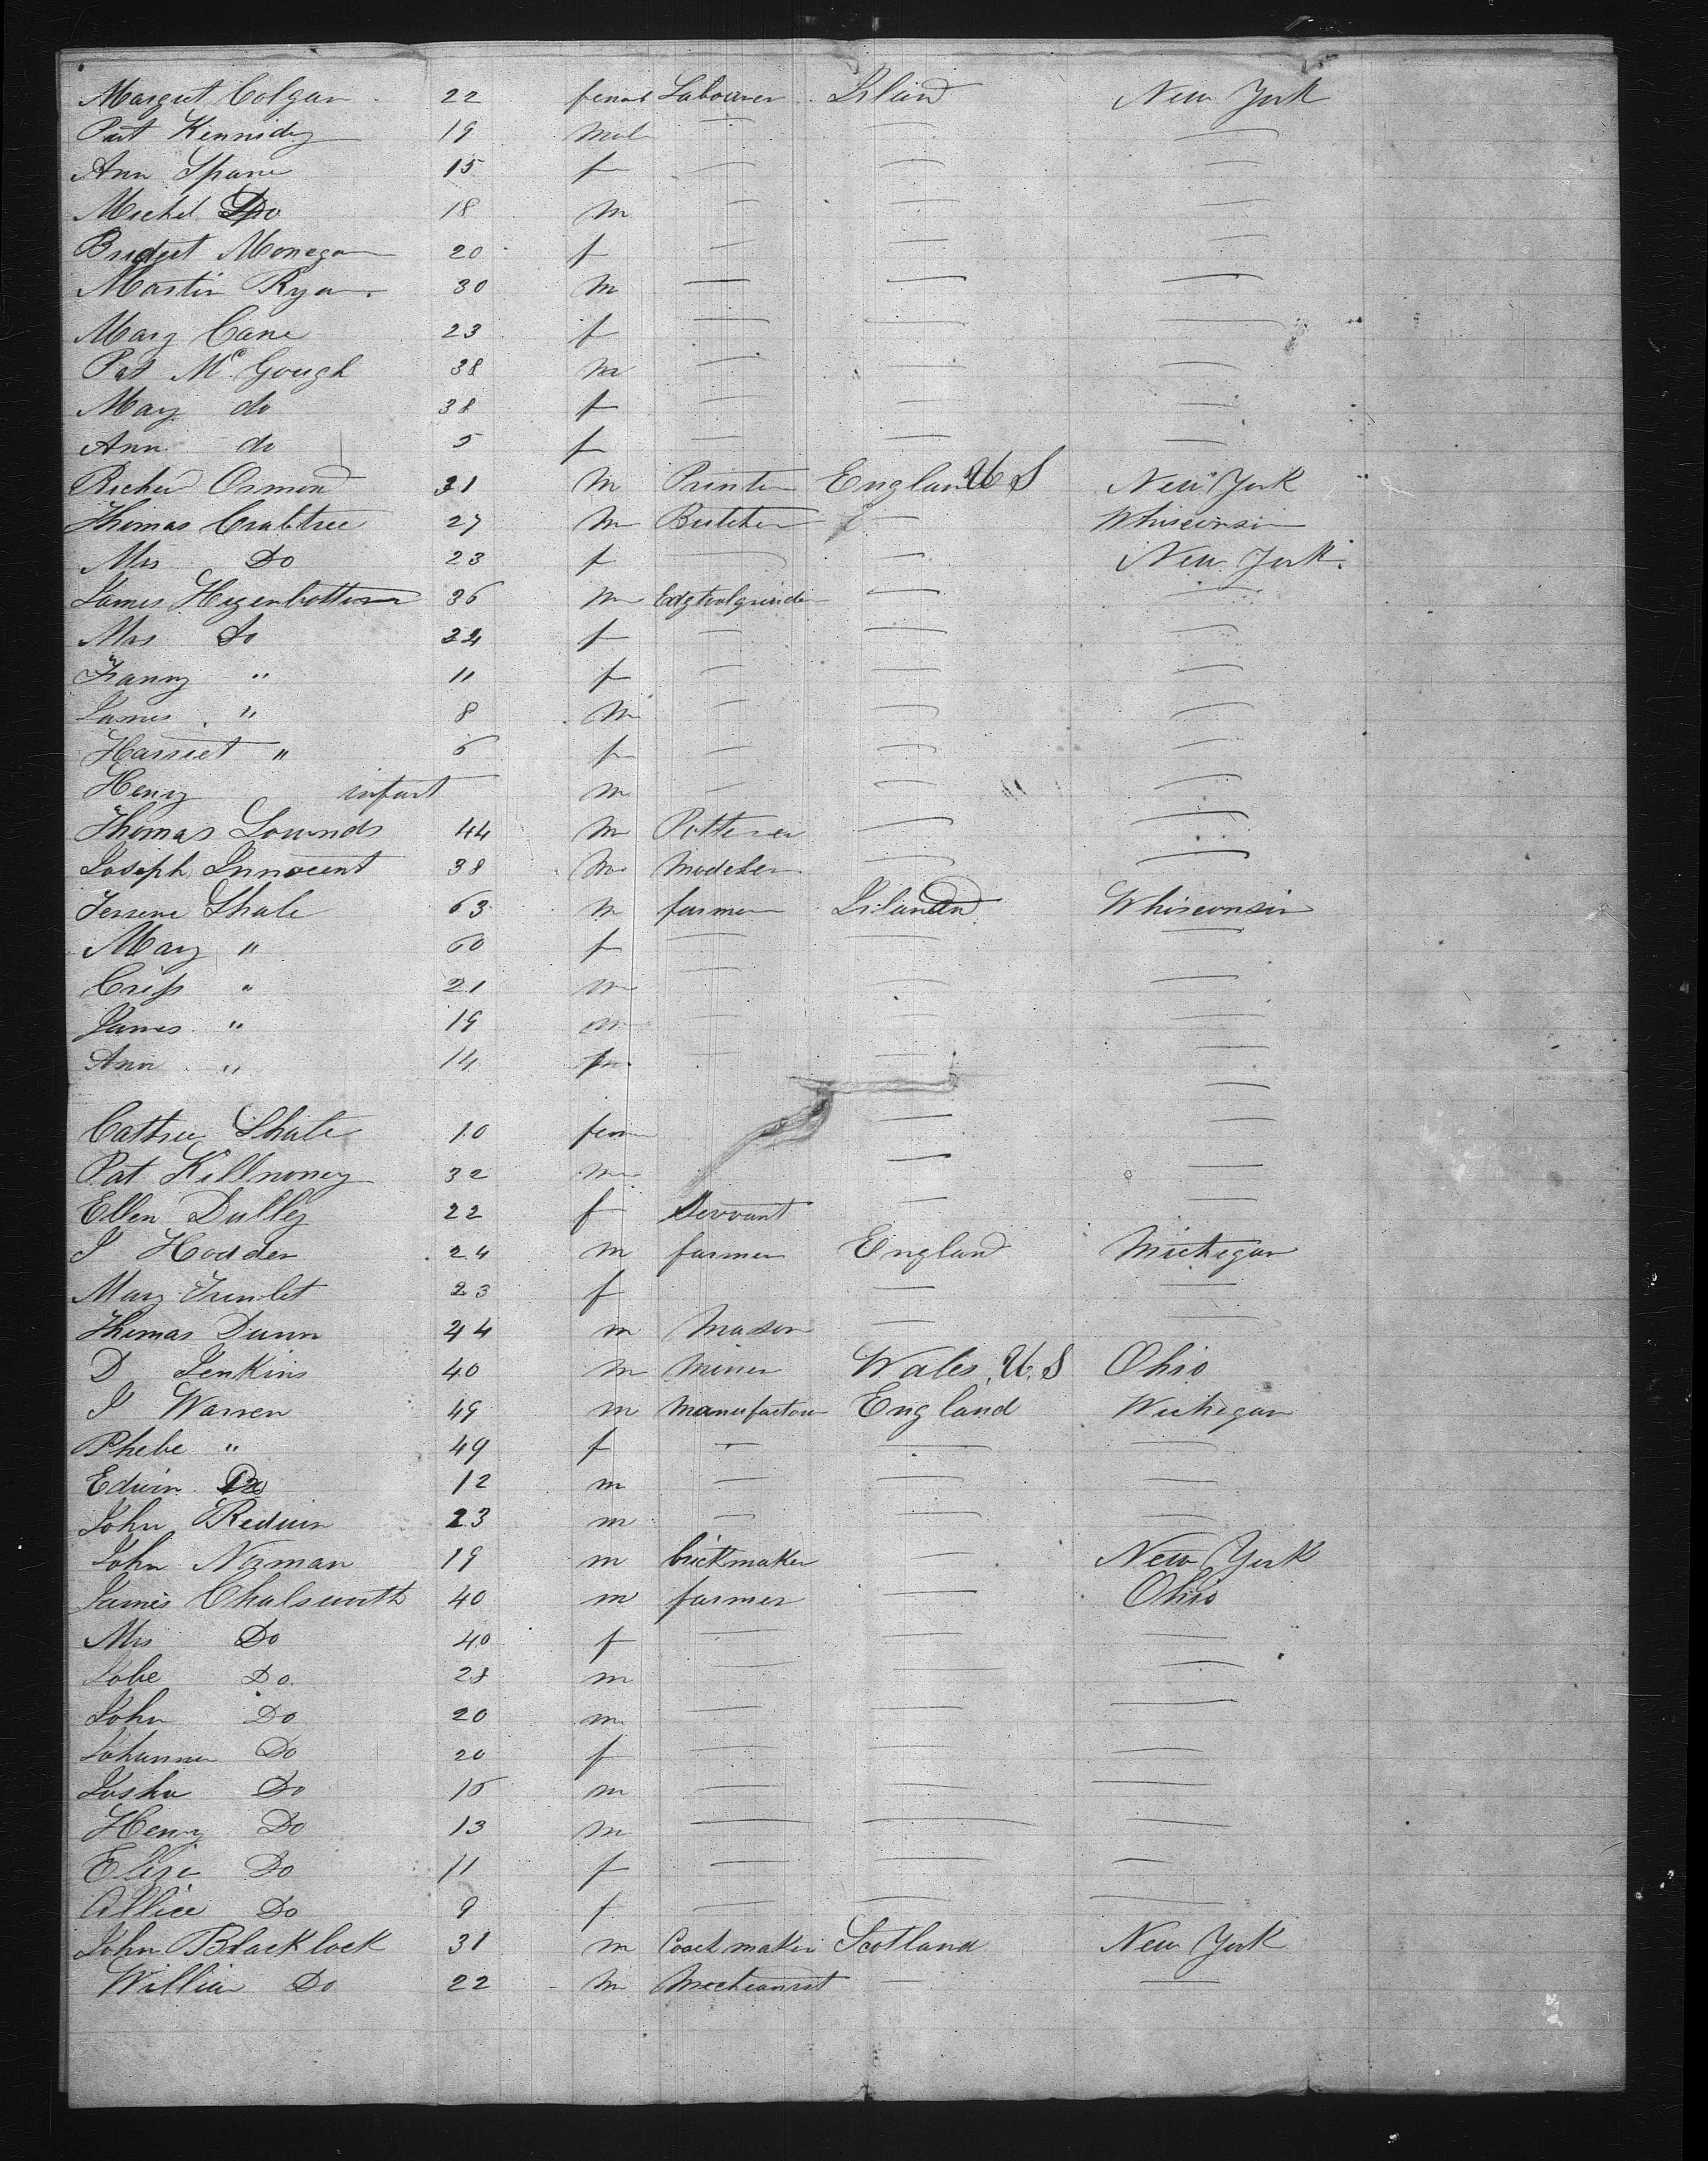 Margret Colgan 22 femal Labourer Irland New York
Pat Kennidy 19 Mal — — —
Ann Spane 15 f — — —
Michel Do 18 M — — —
Bridget Monegan 20 f — — —
Martin Ryan 30 M — — —
Mary Cane 23 f — — —
Pat Mc Gough 38 M — — —
Mary do 38 f — — —
Ann do 5 f — — —
Richd Osmond 31 M Printer England U S New York
Thomas Crabtree 27 M Butcher — Whisconsin
Mrs Do 23 f — — New York
James Higenbottom 36 M Edgtoolgrinder — —
Mrs Do 34 f — — —
Franny " 11 f — — —
James " 8 M — — —
Harriet " 6 f — — —
Henry infant M — — —
Thomas Lownds 44 M Potterer — —
Joseph Innocent 38 M Modeler — —
Shale 63 M farmer Irland Whisconsin
Mary " 60 f — — —
Criss " 21 m — — —
James " 19 m — — —
Ann " 14 fm — — —
Cattree Shale 10 fem — —
Pat Killnoney 32 m — —
Ellen Dulley 22 f Servant — —
J Hodder 24 m farmer England Michigan
Mary Trimlet 23 f — —
Thomas Dunn 44 m Mason — —
D Jenkins 40 m Miner Wales U. S Ohio
J Warren 49 m Manufactour England Michigan
Phebe " 49 f — — —
Edwin Do 12 m — — —
John Reduin 23 m — — —
John Norman 19 m brickmaker — New York
James Chalsworth 40 m farmer — Ohio
Mrs Do 40 f — — —
Jobe Do 28 m — — —
John Do 20 m — — —
Johanna Do 20 f — — —
Joshu Do 16 m — — —
Henry Do 13 m — — —
Eliza Do 11 f — — —
Allice Do 9 f — — —
John Blacklock 31 m Coachmaker Scotland New York
William Do 22 M Mechanist — —